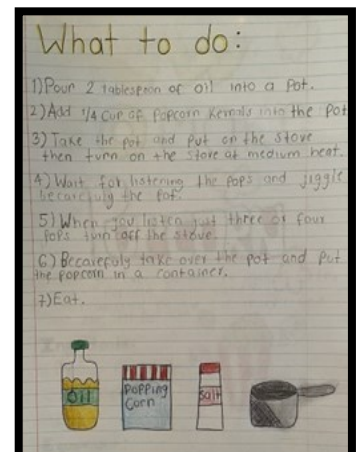 What to do:
1) Pour 2 tablespoon of oil into a Pot.
2) Add 1/4 cup of Popcorn Kernals into the Pot
3) Take the pot and put on the stove
then turn on the stove at medium heat.
4) Wait for listening the pops and jiggle
becarefuly the pot.
5) When you listen just three or four
Pops turn off the stove.
6) Becarefuly take over the pot and put
the popcorn in a container.
7) Eat.
Oil
Popping
Corn
Salt